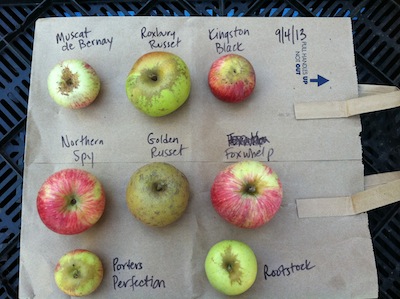 Muscat
de Bernay
Roxbury
Russet
Kingston
Black
9/4/13
PULL HANDLES UP
NOT OUT
Northern
Spy
Golden
Russet
Foxwhelp
Porters
Perfection
Rootstock